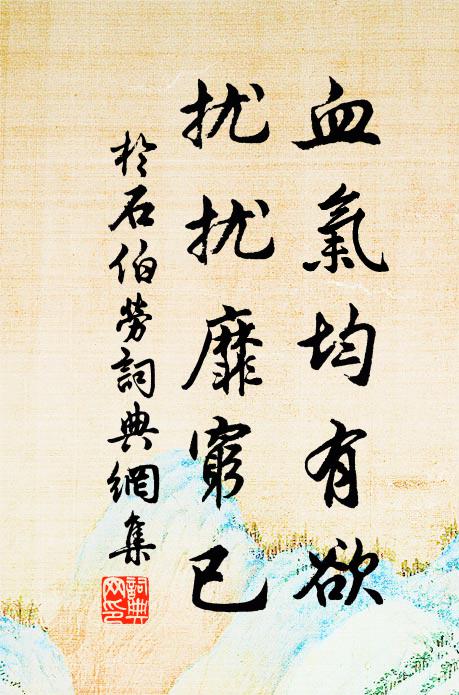 血氣均有欲
扰扰靡窮已
於石伯勞詞典網集
詞典網印